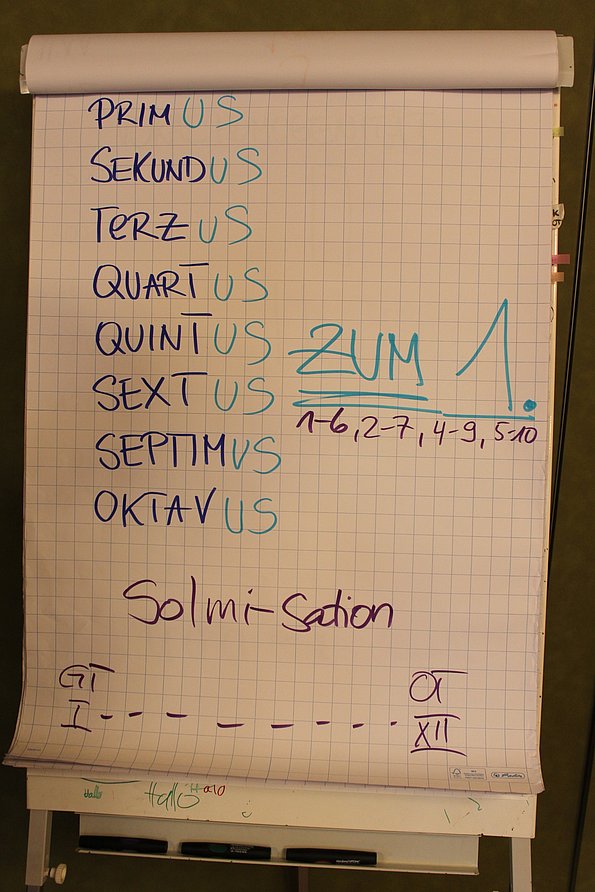 PRIMUS
SEKUNDUS
TERZUS
QUARTUS
QUINTUS
SEXTUS
SEPTIMUS
OKTAVUS
ZUM 1.
1-6, 2-7, 4-9, 5-10
Solmi-Sation
GT OT
I - - - - - - - - - XII
Hallo Hallo Hallo